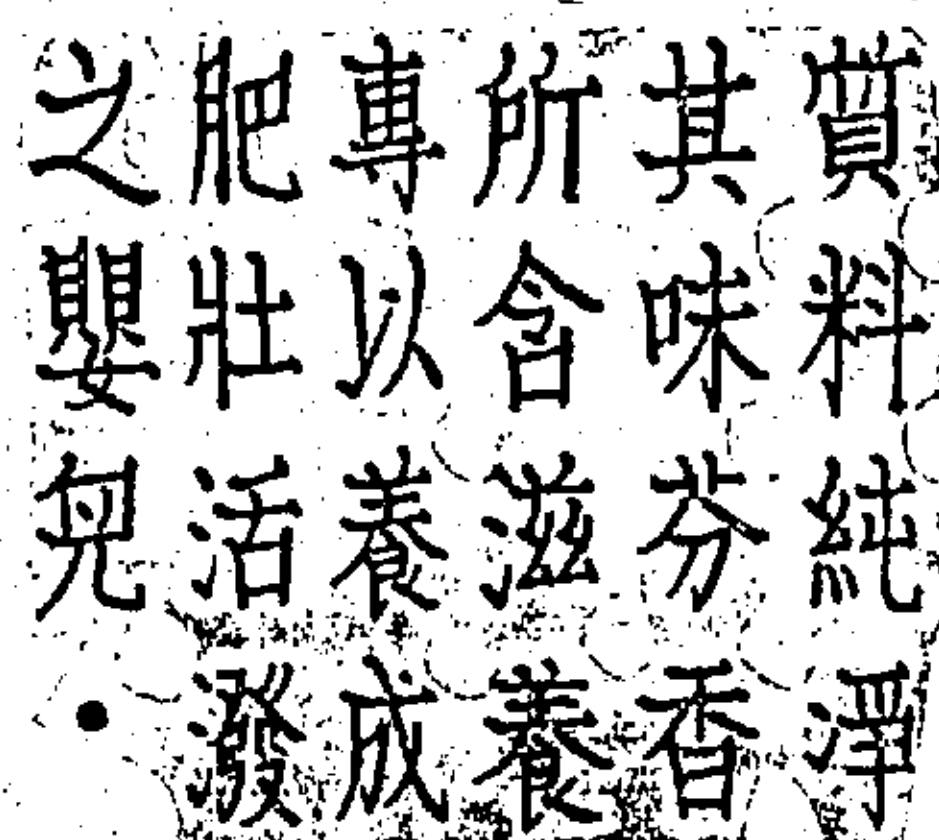 質料純淨
其味芬香
所含滋養
專以養成
肥壯活潑
之嬰兒。